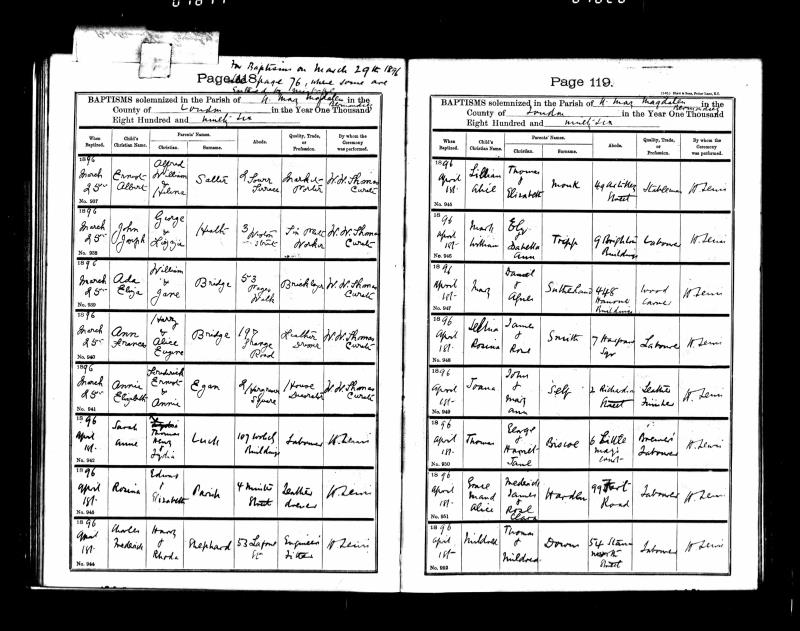 For Baptisms on March 29th 1896
see page 76, where some are
entered by mistake
Page 118.
BAPTISMS solemnized in the Parish of St. Mary Magdalen Bermondsey in the
County of London in the Year One Thousand
Eight Hundred and ninety-six
When Baptized. Child's Christian Name. Parents' Names. Abode. Quality, Trade, or Profession. By whom the Ceremony was performed.
Christian. Surname.
1896 March 25 Ernest Albert Alfred William & Salter 2 Market Porter W. W. Thomas Curate
No. 937
1896 March 25 John Joseph George & Lizzie Heath 3 Street Tin Plate Worker W. W. Thomas Curate
No. 938
1896 March 25 Ada Eliza William & Jane Bridge 53 Pages Walk Bricklayer W. W. Thomas Curate
No. 939
1896 March 25 Ann Frances Harry & Alice Bridge 197 Grange Road Leather W. W. Thomas Curate
No. 940
1896 March 25 Annie Elizabeth Frederick Ernest & Annie Egan 2 Square House Decorator W. W. Thomas Curate
No. 941
1896 April 1st Sarah Anne Thomas Henry & Lydia Luck 107 Buildings Labourer H. Lewis
No. 942
1896 April 1st Rosina & Elizabeth Parish 4 Street Leather H. Lewis
No. 943
1896 April 1st Charles Frederick Harry & Rhoda Shephard 53 St Engineer Fitter H. Lewis
No. 944
Page 119.
BAPTISMS solemnized in the Parish of St. Mary Magdalen Bermondsey in the
County of London in the Year One Thousand
Eight Hundred and ninety-six
When Baptized. Child's Christian Name. Parents' Names. Abode. Quality, Trade, or Profession. By whom the Ceremony was performed.
Christian. Surname.
1896 April 1st Lillian Thomas & Elizabeth Monk 49 Artillery Street Stableman H. Lewis
No. 945
1896 April 1st Mark William Isabella Ann Tripp 9 Brighton Buildings Labourer H. Lewis
No. 946
1896 April 1st May Daniel & Agnes Sutherland 448 Buildings Wood Carver H. Lewis
No. 947
1896 April 1st Rosina James & Rose Smith 7 Sqr Labourer H. Lewis
No. 948
1896 April 1st Joana John & Mary Ann Self 2 Richardson Street Leather Finisher H. Lewis
No. 949
1896 April 1st Thomas George & Harriet Jane Biscoe 6 Little Court Brewer's Labourer H. Lewis
No. 950
1896 April 1st Grace Maud Alice Frederick James & Rose Clara Harden 99 Fort Road Labourer H. Lewis
No. 951
1896 April 1st Mildred Thomas & Mildred Down 54 Street Labourer H. Lewis